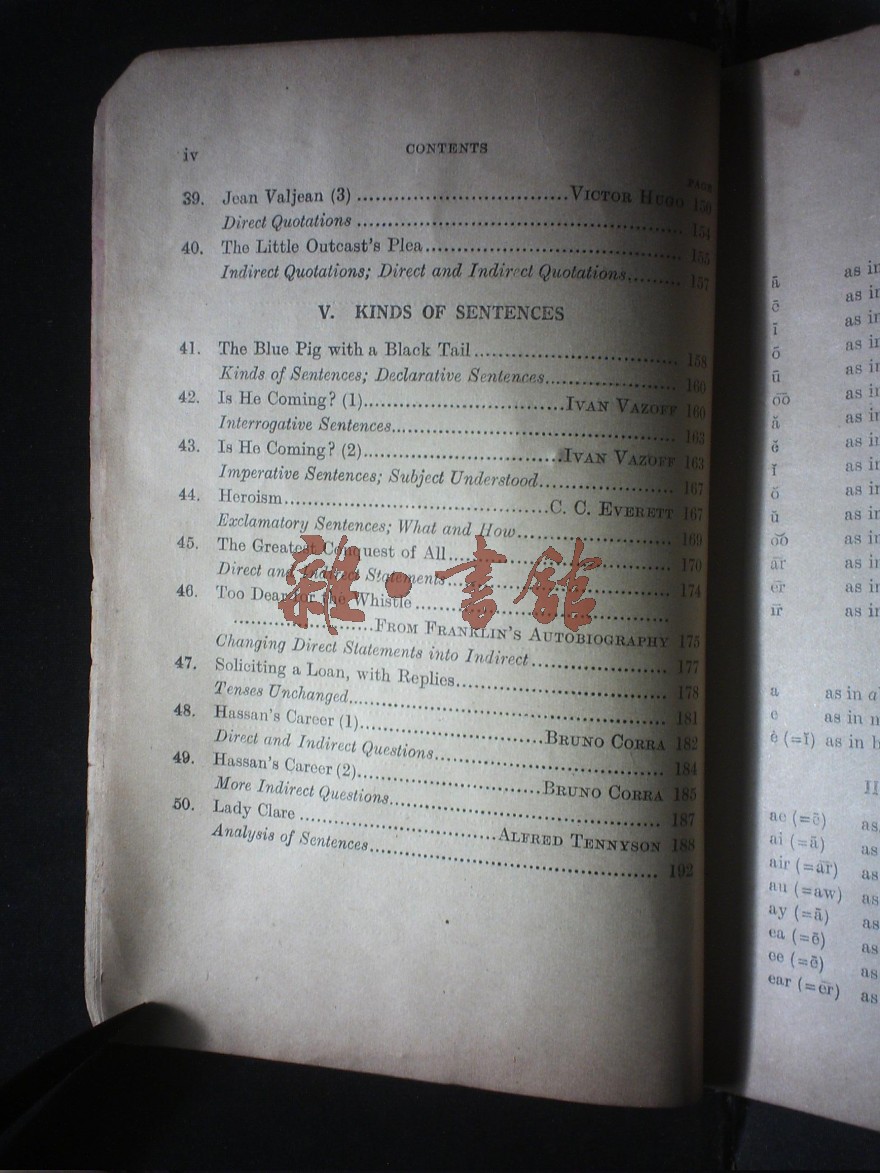 iv CONTENTS
PAGE
39. Jean Valjean (3) ........ VICTOR HUGO 150
Direct Quotations ........ 154
40. The Little Outcast's Plea ........ 155
Indirect Quotations; Direct and Indirect Quotations ........ 157
V. KINDS OF SENTENCES
41. The Blue Pig with a Black Tail ........ 158
Kinds of Sentences; Declarative Sentences ........ 160
42. Is He Coming? (1) ........ IVAN VAZOFF 160
Interrogative Sentences ........ 163
43. Is He Coming? (2) ........ IVAN VAZOFF 163
Imperative Sentences; Subject Understood ........ 167
44. Heroism ........ C. C. EVERETT 167
Exclamatory Sentences; What and How ........ 169
45. The Greatest Conquest of All ........ 170
Direct and Indirect Statements ........ 174
46. Too Dear for the Whistle ........
........ FROM FRANKLIN'S AUTOBIOGRAPHY 175
Changing Direct Statements into Indirect ........ 177
47. Soliciting a Loan, with Replies ........ 178
Tenses Unchanged ........ 181
48. Hassan's Career (1) ........ BRUNO CORRA 182
Direct and Indirect Questions ........ 184
49. Hassan's Career (2) ........ BRUNO CORRA 185
More Indirect Questions ........ 187
50. Lady Clare ........ ALFRED TENNYSON 188
Analysis of Sentences ........ 192
雜·書館
ā as in
ē as in
ī as in
ō as in
ū as in
o͞o as in
ă as in
ĕ as in
ĭ as in
ŏ as in
ŭ as in
o͝o as in
ār as in
ēr as in
īr as in
a as in
e as in
ė (=ĭ) as in
ae (=ē) as
ai (=ā) as
air (=ār) as
au (=aw) as
ay (=ā) as
ea (=ē) as
ee (=ē) as
ear (=ēr) as